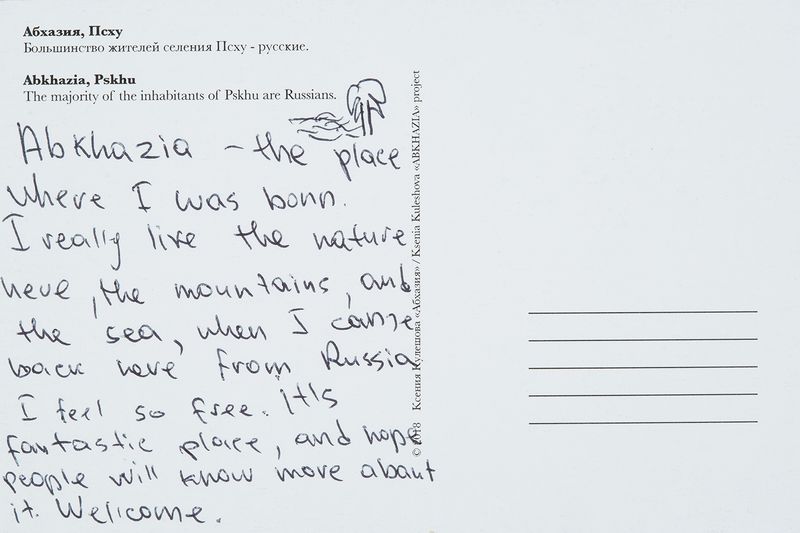 Абхазия, Псху
Большинство жителей селения Псху - русские.
Abkhazia, Pskhu
The majority of the inhabitants of Pskhu are Russians.
Abkhazia – the place
where I was bonn.
I really like the nature
here, the mountains, and
the sea, when I came
back here from Russia
I feel so free. It's
fantastic place, and hope
people will know more about
it. Welcome.
© 2018 Ксения Кулешова «Абхазия» / Ksenia Kuleshova «ABKHAZIA» project